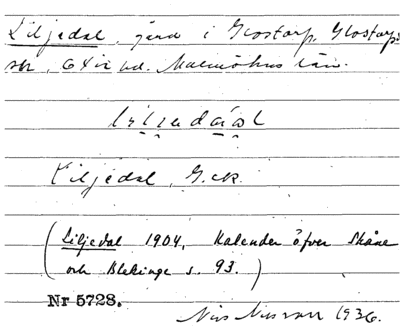 Liljedal, gård i Glostorp, Glostorps
skn, Oxie hd. Malmöhus län.
Liljedal, G.ek.
(Liljedal 1904, Kalender öfver Skåne
och Blekinge s. 93.)
Nr 5728.
Nils Nilsson 1936.